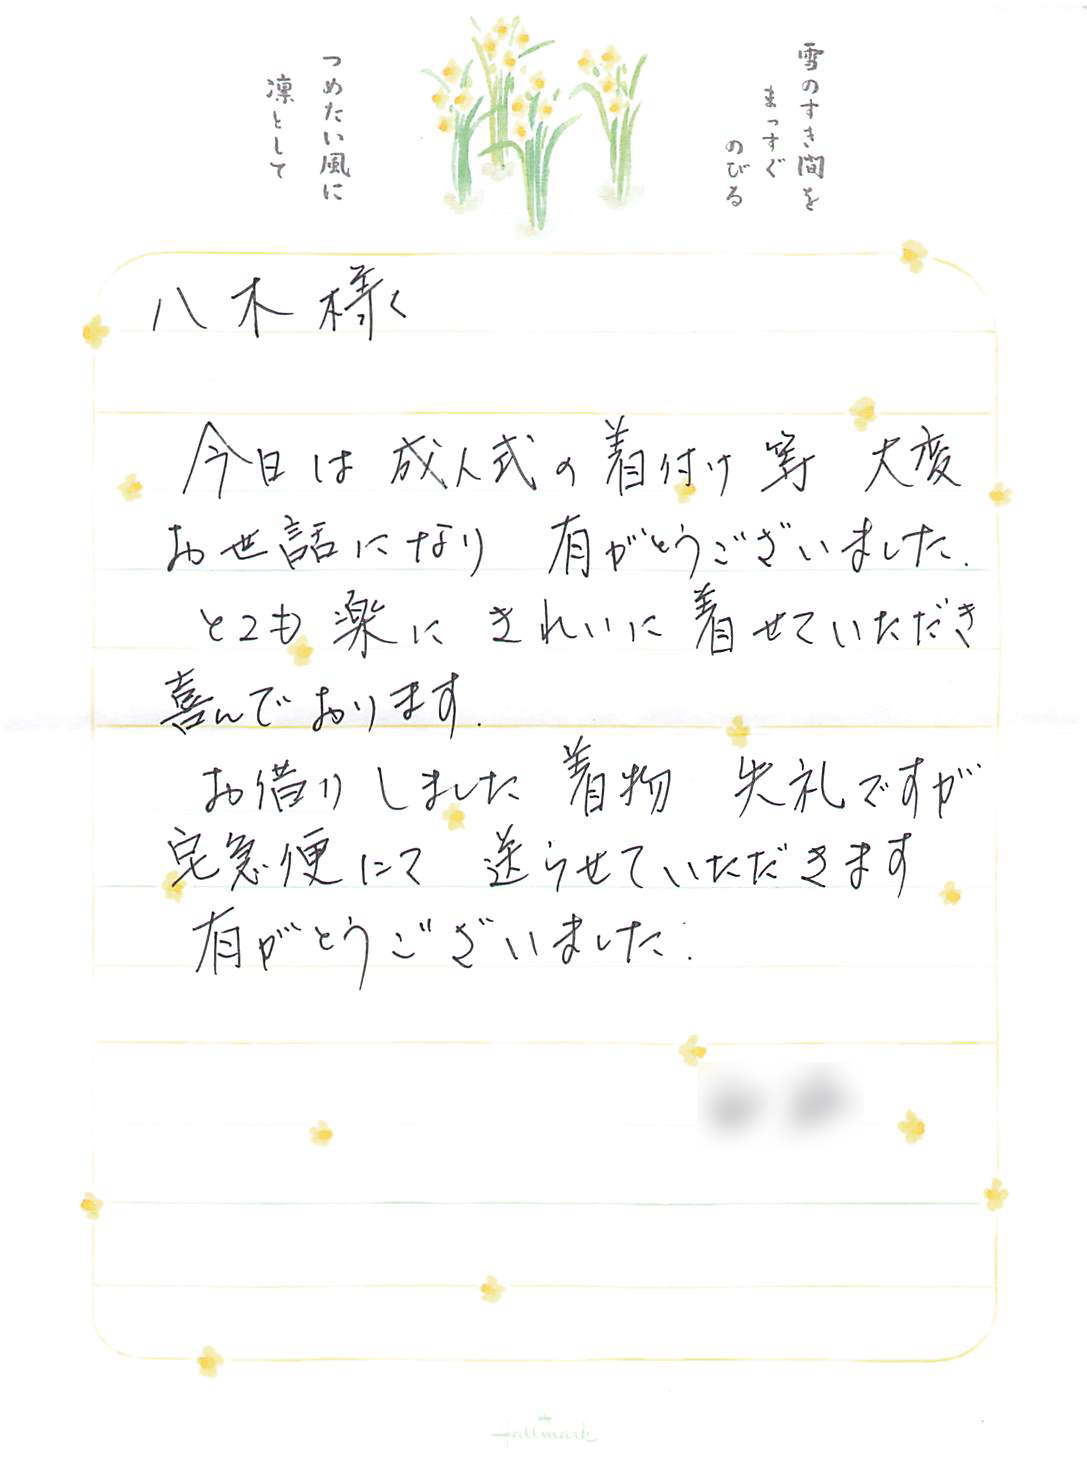 雪のすき間を
まっすぐ
のびる
つめたい風に
凛として
八木様
今日は 成人式の着付け等 大変
お世話になり 有がとうございました.
とても楽に きれいに着せていただき
喜んでおります.
お借りしました着物 失礼ですが
宅急便にて 送らせていただきます
有がとうございました.
Hallmark